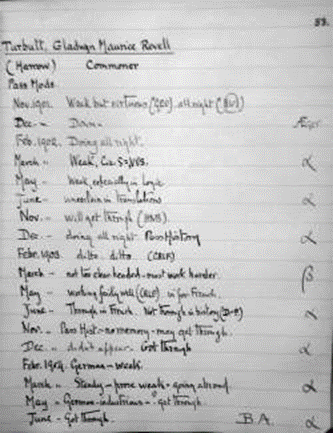 33.
Turbutt, Gladwyn Maurice Revell
(Harrow) Commoner
Pass Mods.
Nov. 1901. Weak but virtuous all right
Dec. " Down Æger
Feb. 1902. Doing all right.
March " Weak, α
May " Weak, especially in Logic
June " uncertain in translations α
Nov. " will get through
Dec. " doing all right Pass History α
Febr. 1903 ditto ditto
March " not too clear headed - must work harder. β
May " working fairly well in for French.
June " Through in French. Not through in history α
Nov. " Pass Hist - no memory - may get through.
Dec " didn't appear. Got through α
Febr. 1904. German - weak.
March " Steady - prose weak - going abroad α
May " German - industrious - got through.
June " Got through. B.A. α